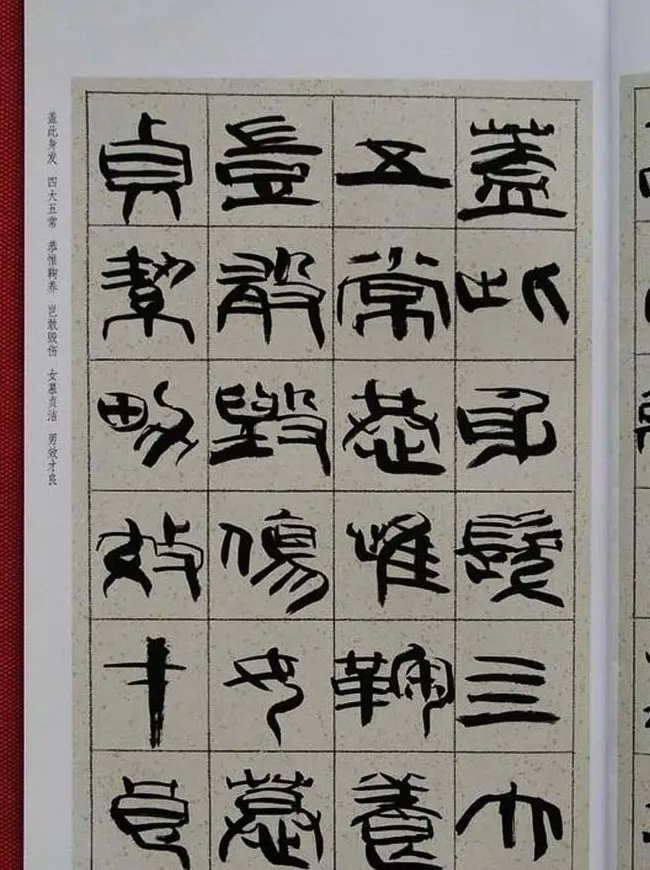 蓋此身髮亖大
五常恭惟鞠養
豈敢毀傷女慕
貞絜男效才良
盖此身发 四大五常 恭惟鞠养 岂敢毁伤 女慕贞洁 男效才良